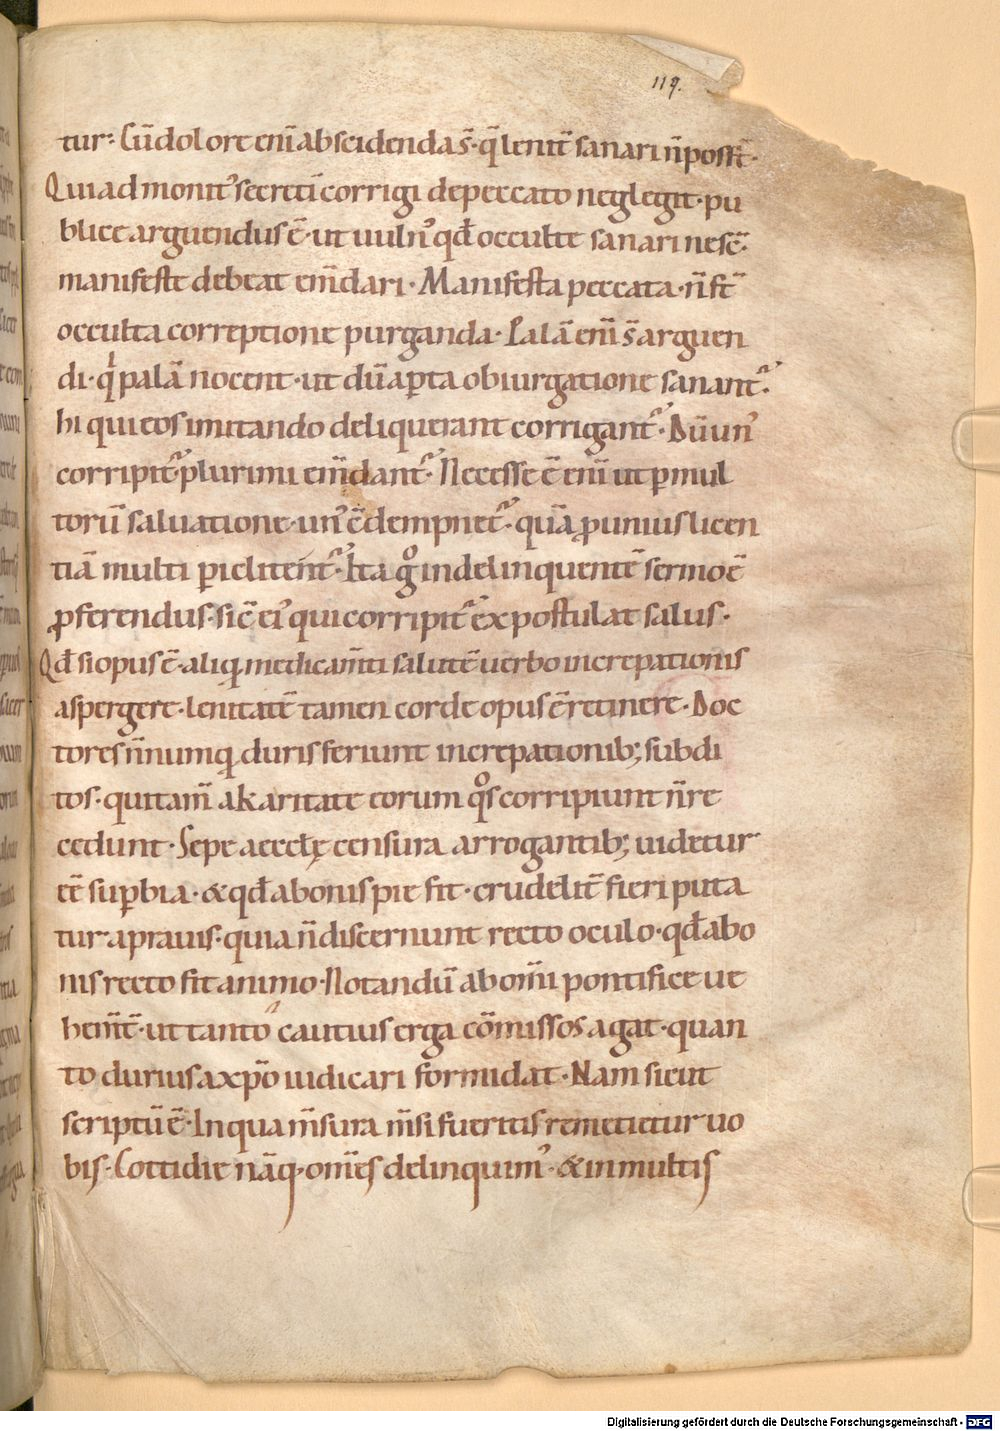 119.
tur· Cū dolore enī abscidenda s̄· q̄ lenit̄ sanari n̄ posst̄·
Qui admonit᾽ secretī corrigi de peccato neglegit· pu
blice arguendus ē· ut uuln᾽ qđ occulte sanari nesc̄·
manifeste debeat em̄dari· Manifesta peccata· n̄ st̄
occulta correptione purganda· Palā enī s̄ arguen
di· q̇ palā nocent· ut dū aꝑta obiurgatione sanant᾽·
hi qui eos imitando deliquerant corrigant᾽· Dū un᾽
corripit᾽ plurimi em̄dant᾽· Necesse ē enī ut ꝑ mul
torū saluatione· un᾽ c̄dempnet᾽· quā ꝓ unius licen
tiā multi ꝑiclitent᾽· Ita g̊ in delinquentē sermo ē
ꝓferendus· sic̄ ei᾽ qui corripit᾽ expostulat salus·
Qđ si opus ē· aliq̄ medicam̄ti salutē uerbo increpationis
aspergere· lenitatē tamen corde opus ē retinere· Doc
tores n̄numq̄ duris feriunt increpationib; subdi
tos· qui tam̄ a karitate eorum q̊s corripiunt n̄ re
cedunt· Sepe aecclę censura arrogantib; uidetur
eē suꝑbia· & qđ a bonis pie fit· crudelit̄ fieri puta
tur a prauis· quia n̄ discernunt recto oculo· qđ a bo
nis recto fit animo· Notandū ab om̄i pontifice ue
hem̄t̄· ut tanto cautius erga cōmissos agat· quan
to durius a xp̄o iudicari formidat· Nam sicut
scriptū ē· In qua m̄sura m̄si fueritis remetietur uo
bis· Cottidie nāq· om̄es delinquim᾽· & in multis
Digitalisierung gefördert durch die Deutsche Forschungsgemeinschaft - DFG